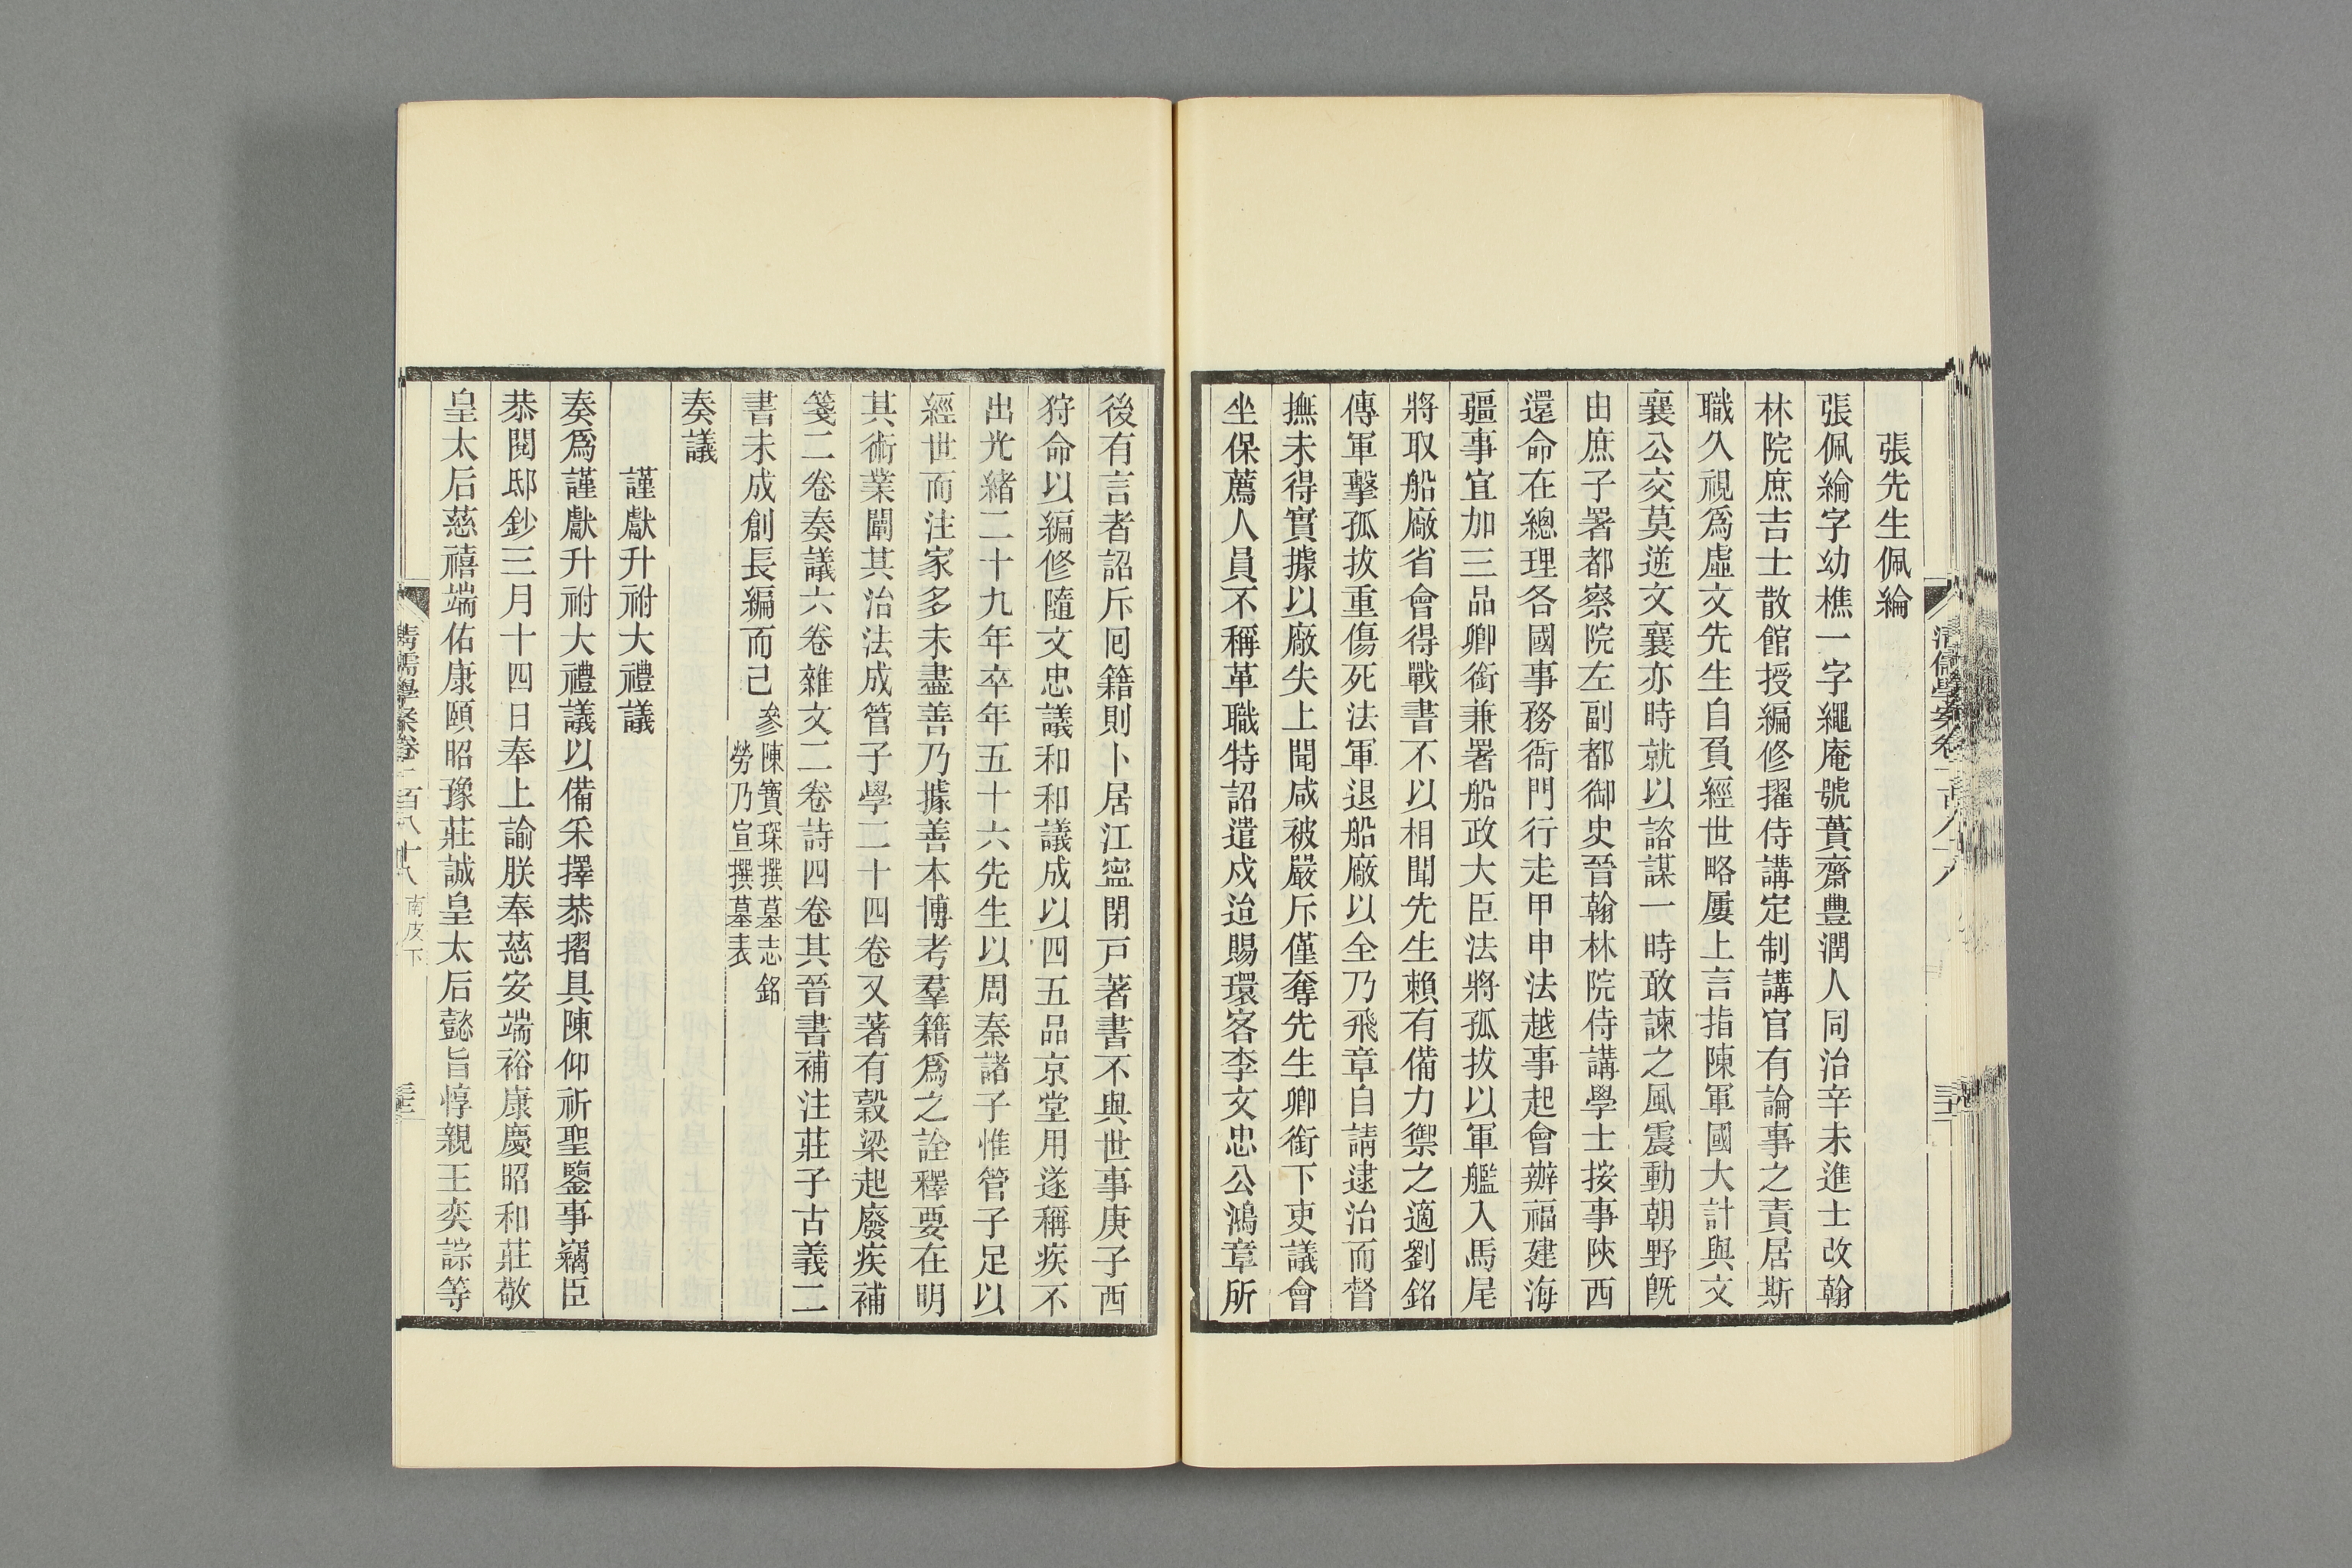 張先生佩綸
張佩綸字幼樵一字繩庵號蕢齋豐潤人同治辛未進士改翰
林院庶吉士散館授編修擢侍講定制講官有論事之責居斯
職久視爲虛文先生自負經世略屢上言指陳軍國大計與文
襄公交莫逆文襄亦時就以諮謀一時敢諫之風震動朝野旣
由庶子署都察院左副都御史晉翰林院侍講學士按事陝西
還命在總理各國事務衙門行走甲申法越事起會辦福建海
疆事宜加三品卿銜兼署船政大臣法將孤拔以軍艦入馬尾
將取船廠省會得戰書不以相聞先生賴有備力禦之適劉銘
傳軍擊孤拔重傷死法軍退船廠以全乃飛章自請逮治而督
撫未得實據以廠失上聞咸被嚴斥僅奪先生卿銜下吏議會
坐保薦人員不稱革職特詔遣戍迨賜環客李文忠公鴻章所
後有言者詔斥囘籍則卜居江寍閉戸著書不與世事庚子西
狩命以編修隨文忠議和和議成以四五品京堂用遂稱疾不
出光緒二十九年卒年五十六先生以周秦諸子惟管子足以
經世而注家多未盡善乃據善本博考羣籍爲之詮釋要在明
其術業闡其治法成管子學二十四卷又著有穀梁起廢疾補
箋二卷奏議六卷雜文二卷詩四卷其晉書補注莊子古義二
書未成創長編而己參陳寶琛撰墓志銘
勞乃宣撰墓表
奏議
謹獻升祔大禮議
奏爲謹獻升祔大禮議以備采擇恭摺具陳仰祈聖鑒事竊臣
恭閱邸鈔三月十四日奉上諭朕奉慈安端裕康慶昭和莊敬
皇太后慈禧端佑康頤昭豫莊誠皇太后懿旨惇親王奕誴等
清儒學案卷一百八十八 南皮下